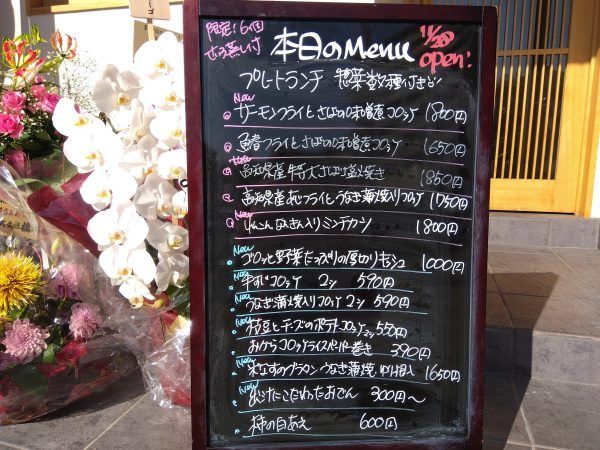 限定:6個
せいろ蒸し付
本日のMenu
11/20 open!
プレートランチ 惣菜数種付き
New サーモンフライとさばの味噌煮コロッケ 1800円
鱧フライとさばの味噌煮コロッケ 1650円
高知県産特大さば塩焼き 1850円
高知県産あじフライとうなぎ蒲焼入りコロッケ 1750円
New れんこんなんきん入りミンチカツ 1800円
New ゴロッと野菜たっぷりの厚切りキッシュ 1000円
New 牛すじコロッケ 2コ 590円
New うなぎ蒲焼入りコロッケ 2コ 590円
New 枝豆とチーズのポテトコロッケ 2コ 550円
おからコロッケライスペーパー巻き 390円
New 米なすのグラタン うなぎ蒲焼 1650円
New 出汁にこだわったおでん 300円〜
New 柿の白あえ 600円